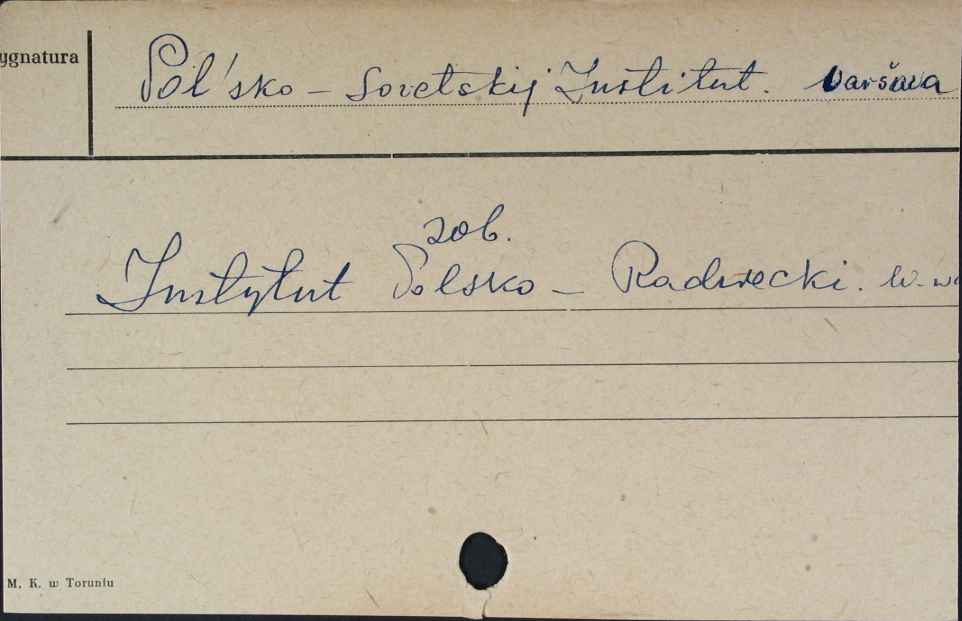 ygnatura
Pol'sko - Sovetskij Institut. Varšava
zob.
Instytut Polsko - Radziecki. W-wa
M. K. w Toruniu